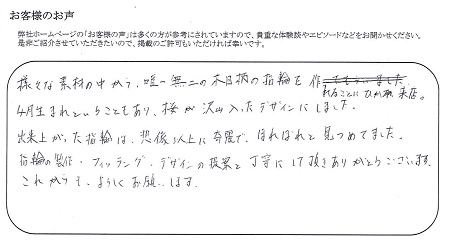 お客様のお声
弊社ホームページの「お客様の声」は多くの方が参考にされていますので、貴重な体験談やエピソードなどをお聞かせください。
是非ご紹介させていただきたいので、掲載のご許可もいただければ幸いです。
様々な素材の中から、唯一無二の木目柄の指輪を作れることにひかれ来店。
4月生まれということもあり、桜が沢山入ったデザインにしました。
出来上がった指輪は、想像以上に奇麗で、ほれぼれと見つめてました。
指輪の製作・フィッティング・デザインの提案と丁寧にして頂きありがとうございます。
これからも、よろしくお願いします。